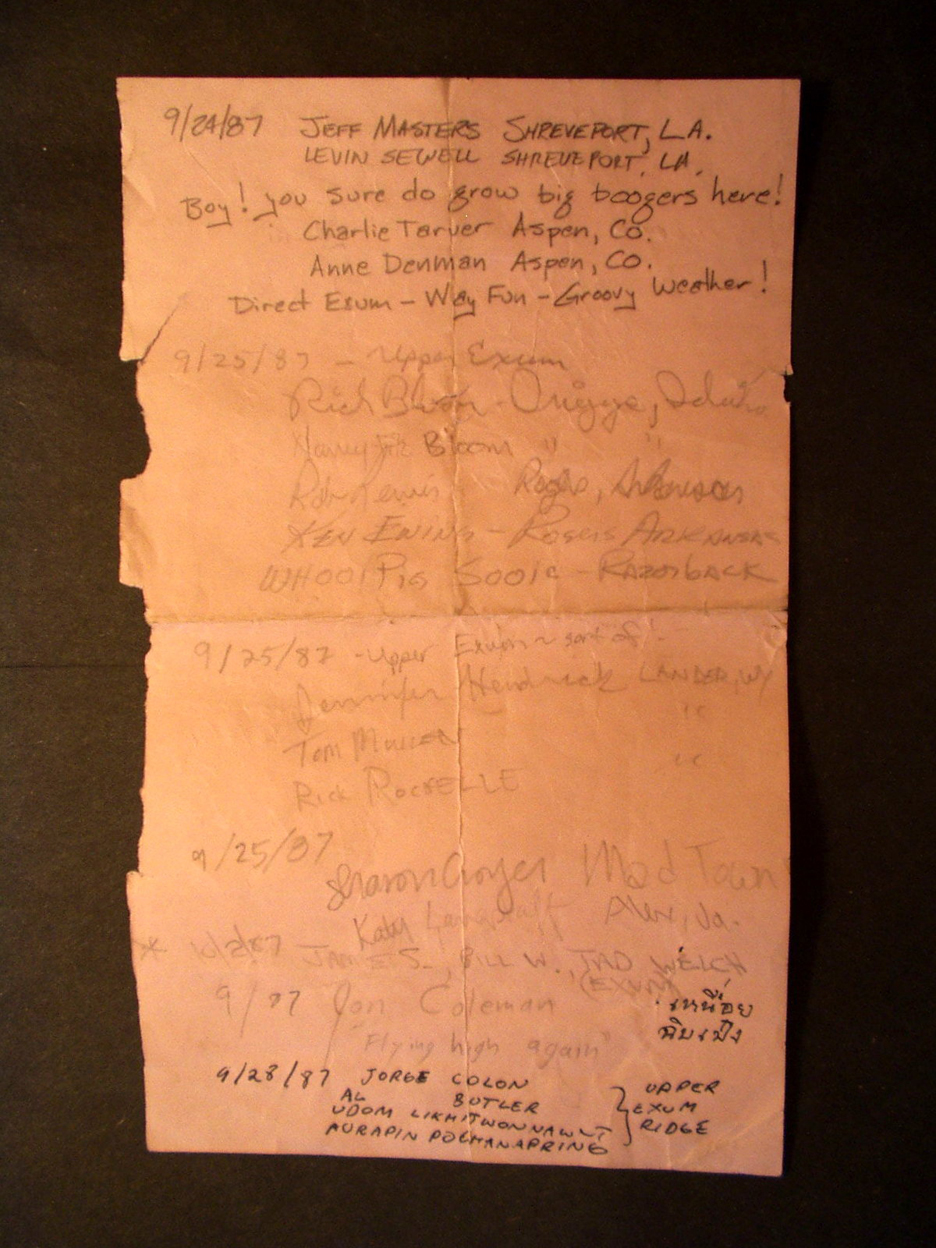 9/24/87 JEFF MASTERS SHREVEPORT, LA.
LEVIN SEWELL SHREVEPORT, LA.
Boy! you sure do grow big boogers here!
Charlie Tarver Aspen, Co.
Anne Denman Aspen, CO.
Direct Exum - Way Fun - Groovy Weather!
9/25/87 - Upper Exum
Rich Driggs, Idaho
Nancy Bloom " "
Rogers, Arkansas
KEN EWING - ROGERS ARKANSAS
WHOO! PIG SOOIE - RAZORBACK
9/25/87 - Upper Exum ~ sort of!
Jennifer LANDER, WY
TOM MULLEN "
RICK ROCHELLE "
9/25/87
Sharon Mad Town
Katy Alex, Va.
* JAMIE S., BILL W., TAD WELCH
(EXUM)
9/ 87 Jon Coleman
"Flying high again"
เหนื่อย
9/28/87 JORGE COLON
AL BUTLER
UDOM LIKHITWONNAWUT
AURAPIN
UPPER
EXUM
RIDGE